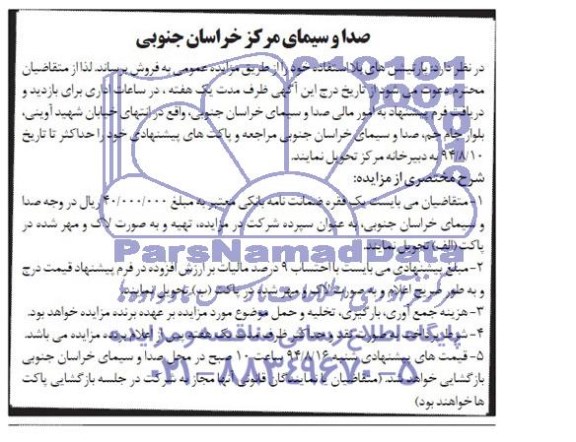 صدا و سیمای مرکز خراسان جنوبی
در نظر دارد پارتیشن های بلااستفاده خود را از طریق مزایده عمومی به فروش برساند. لذا از متقاضیان
محترم دعوت می شود از تاریخ درج این آگهی ظرف مدت یک هفته ، در ساعات اداری برای بازدید و
دریافت فرم پیشنهاد به امور مالی صدا و سیمای خراسان جنوبی، واقع در انتهای خیابان شهید آوینی،
بلوار جام جم، صدا و سیمای خراسان جنوبی مراجعه و پاکت های پیشنهادی خود را حداکثر تا تاریخ
۹۴/۸/۱۰ به دبیرخانه مرکز تحویل نمایند.
شرح مختصری از مزایده:
۱- متقاضیان می بایست یک فقره ضمانت نامه بانکی معتبر به مبلغ ۴۰/۰۰۰/۰۰۰ ریال در وجه صدا
و سیمای خراسان جنوبی، به عنوان سپرده شرکت در مزایده، تهیه و به صورت لاک و مهر شده در
پاکت (الف) تحویل نمایند.
ParsNamadData
۲- مبلغ پیشنهادی می بایست با احتساب ۹ درصد مالیات بر ارزش افزوده در فرم پیشنهاد قیمت درج
و به طور صریح اعلام و به صورت لاک و مهر شده در پاکت (ب) تحویل نمایند.
۳- هزینه جمع آوری، بارگیری، تخلیه و حمل موضوع مورد مزایده بر عهده برنده مزایده خواهد بود.
۴- شرایط پرداخت به صورت نقد و حداکثر ظرف مدت یک هفته پس از اعلام برنده مزایده می باشد.
پایگاه اطلاع رسانی مناقصه و مزایده
۵- قیمت های پیشنهادی شنبه ۹۴/۸/۱۶ ساعت ۱۰ صبح در محل صدا و سیمای خراسان جنوبی
۰۲۱-۸۸۳۴۹۶۷۰-۵
بازگشایی خواهد شد. (متقاضیان یا نمایندگان قانونی آنها مجاز به شرکت در جلسه بازگشایی پاکت
ها خواهند بود)